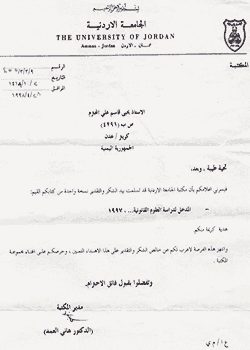 بسم الله الرحمن الرحيم
الجامعة الاردنية
THE UNIVERSITY OF JORDAN
Amman - Jordan عمان - الاردن
المكتبة
الرقم
التاريخ
الموافق
الاستاذ يحيى قاسم علي المحترم
ص ب (٤٢٩١)
كريتر / عدن
الجمهورية اليمنية
تحية طيبة ، وبعد،
فيسرني اعلامكم بأن مكتبة الجامعة الاردنية قد تسلمت بيد الشكر والتقدير نسخة واحدة من كتابكم القيم:
المدخل لدراسة العلوم القانونية.. ١٩٩٧
هدية كريمة منكم
وانتهز هذه الفرصة لاعرب لكم عن خالص الشكر والتقدير على هذا الاهداء الثمين ، وحرصكم على اغناء مجموعة المكتبة.
وتفضلوا بقبول فائق الاحترام،
مدير المكتبة
(الدكتور هاني العمد)